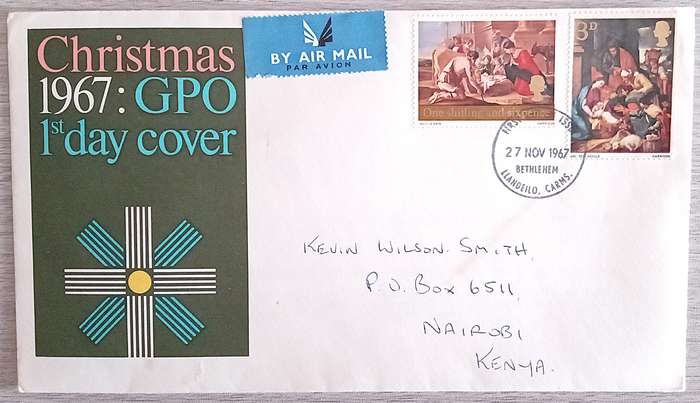 Christmas
1967: GPO
1st day cover
BY AIR MAIL
PAR AVION
One shilling and sixpence
HARRISON
3D
HARRISON
27 NOV 1967
BETHLEHEM
LLANDEILO, CARMS.
KEVIN WILSON. SMITH,
P.O. BOX 6511,
NAIROBI
KENYA.